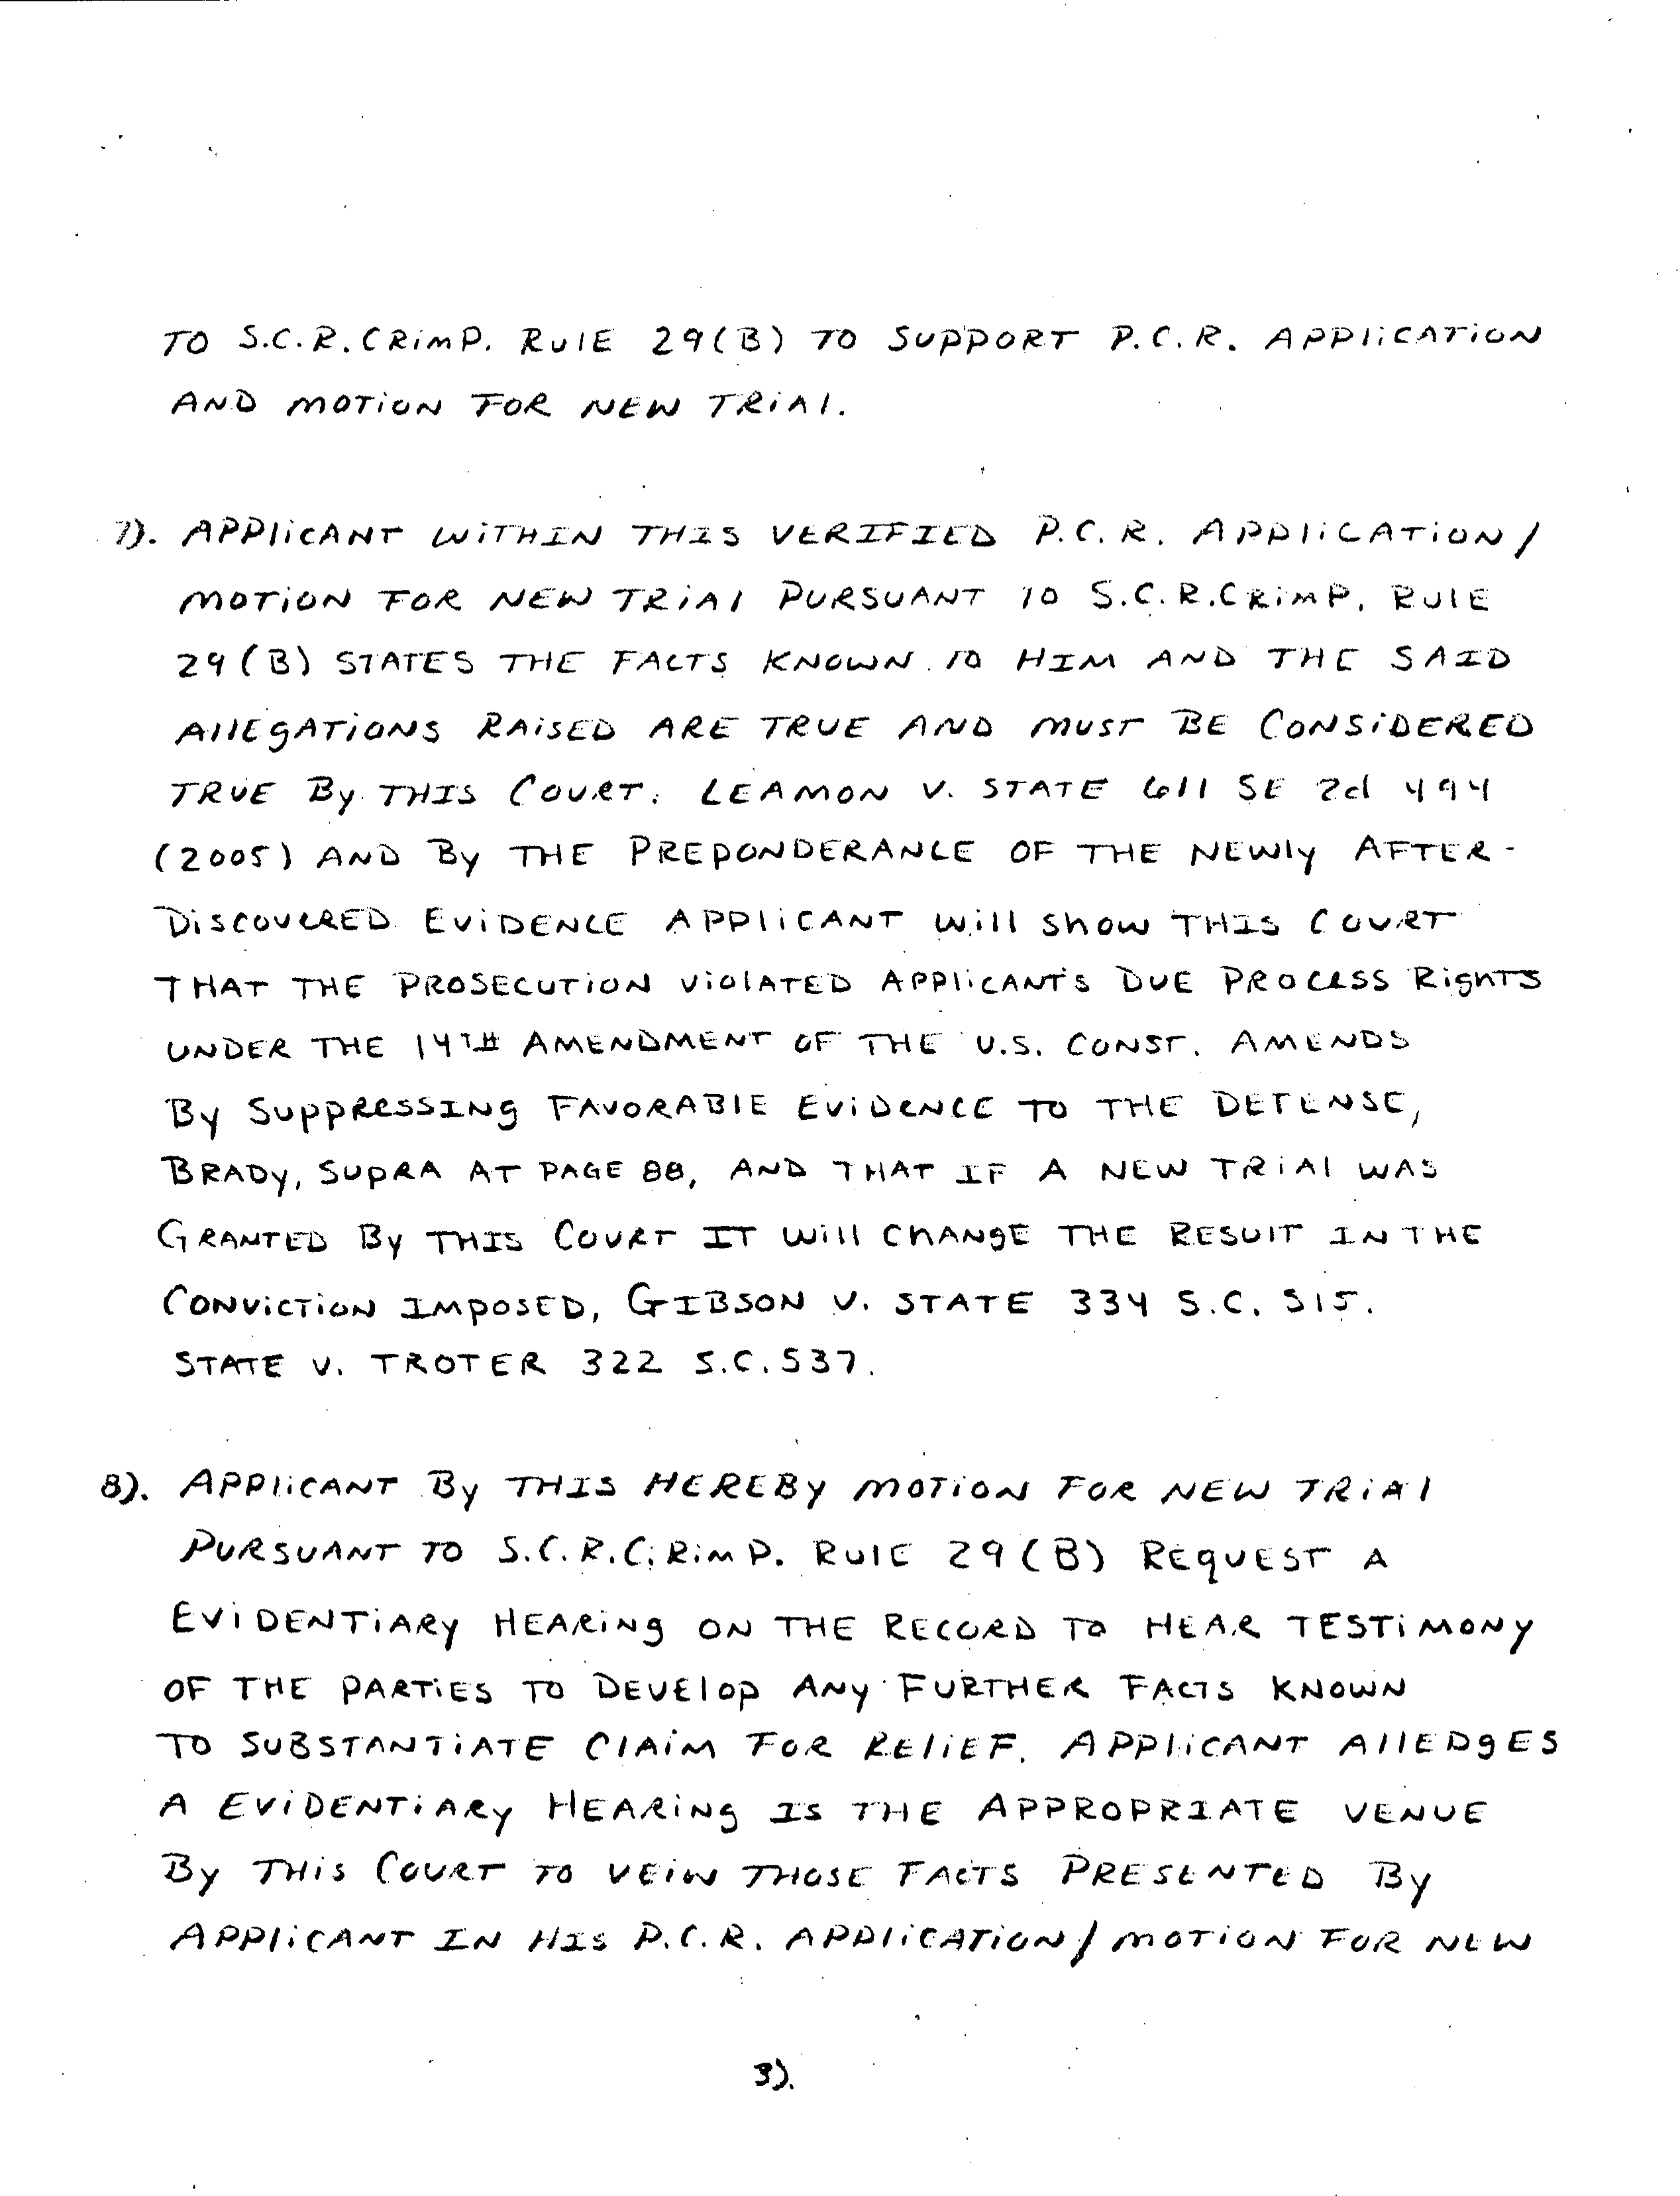 TO S.C.R.CRimP. RulE 29(B) TO SUPPORT P.C.R. APPliCATiON
AND MOTiON FOR NEW TRiAl.
7). APPliCANT WiTHIN THIS VERIFIED P.C.R. APPliCATiON/
MOTiON FOR NEW TRiAl PURSUANT TO S.C.R.CRimP. RUlE
29(B) STATES THE FACTS KNOWN TO HIM AND THE SAID
AllEgATiONS RAiSED ARE TRUE AND MUST BE CONSiDERED
TRUE By THIS COURT. LEAMON V. STATE 611 SE 2d 494
(2005) AND By THE PREPONDERANCE OF THE NEWly AFTER-
DiSCOVERED EViDENCE APPliCANT Will Show THIS COURT
THAT THE PROSECUTiON ViOlATED APPliCANT'S DUE PROCESS RighTS
UNDER THE 14TH AMENDMENT OF THE U.S. CONST. AMENDS
By SUPPRESSINg FAVORABlE EViDENCE TO THE DEFENSE,
BRADy, SUPRA AT PAGE 88, AND THAT IF A NEW TRiAl WAS
GRANTED By THIS COURT IT Will ChANgE THE RESUlT IN THE
CONViCTiON IMPOSED, GIBSON V. STATE 334 S.C. 515.
STATE V. TROTER 322 S.C. 537.
8). APPliCANT By THIS HEREBy MOTiON FOR NEW TRiAl
PURSUANT TO S.C.R.C.RimP. RUlE 29(B) REqUEST A
EViDENTiARy HEARiNg ON THE RECORD TO HEAR TESTiMONy
OF THE PARTiES TO DEVElOP ANy FURTHER FACTS KNOWN
TO SUBSTANTiATE ClAiM FOR REliEF. APPliCANT AllEDgES
A EViDENTiARy HEARiNg IS THE APPROPRIATE VENUE
By THiS COURT TO VEiW THOSE FACTS PRESENTED By
APPliCANT IN HIS P.C.R. APPliCATiON/MOTiON FOR NEW
3).